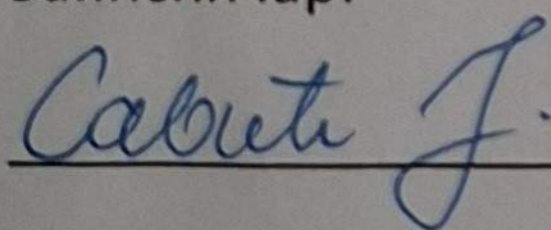 Cabuti J.